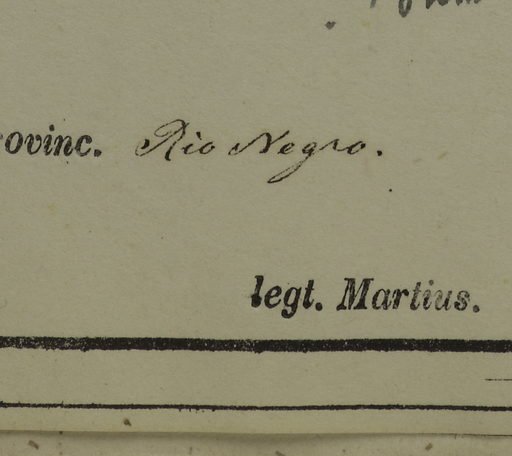 ovinc. Rio Negro.
legt. Martius.